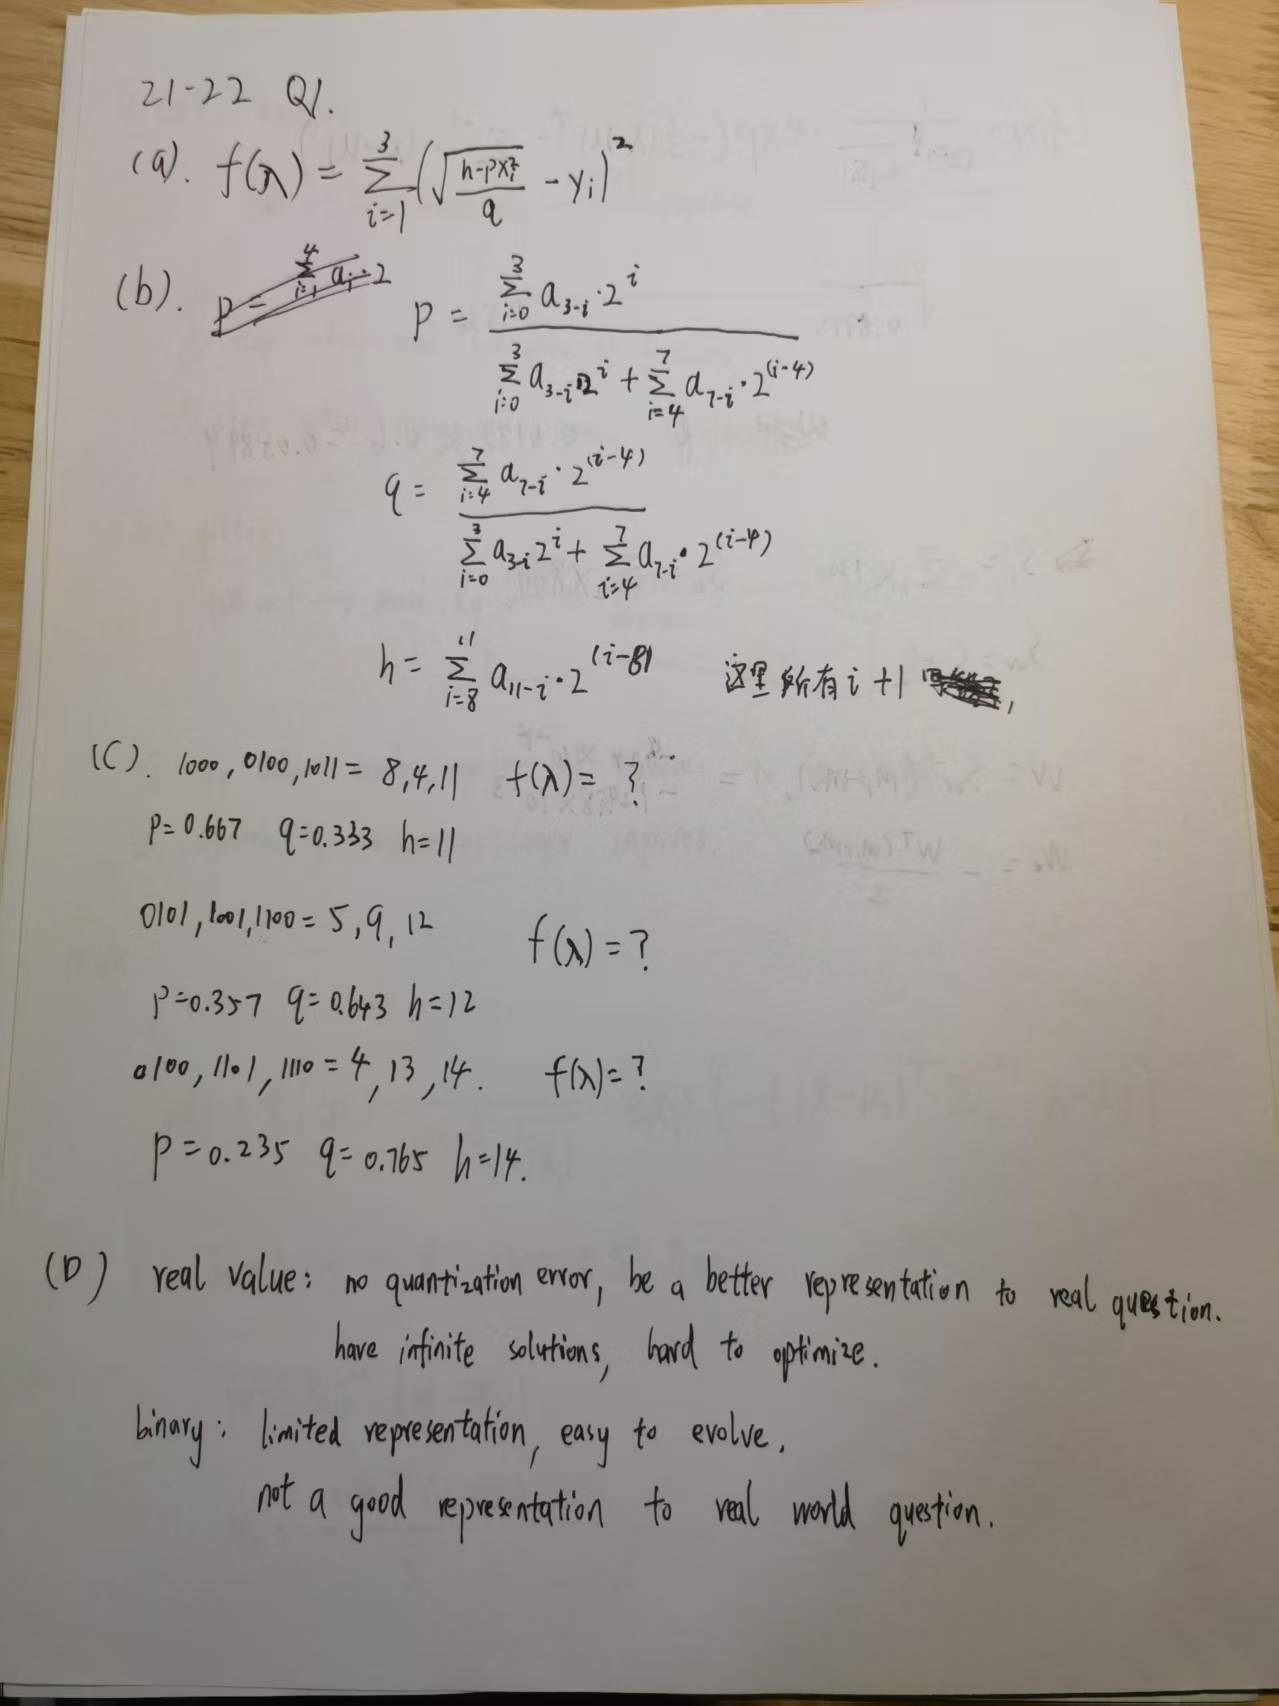 21-22 Q1.
(a). f(λ) = Σ_{i=1}^{3} (√((h-px_i²)/q) - y_i)²
(b). p = Σ_{i=1}^{4} a_i·2 p = (Σ_{i=0}^{3} a_{3-i}·2^i) / (Σ_{i=0}^{3} a_{3-i}·2^i + Σ_{i=4}^{7} a_{7-i}·2^{(i-4)})
q = (Σ_{i=4}^{7} a_{7-i}·2^{(i-4)}) / (Σ_{i=0}^{3} a_{3-i}2^i + Σ_{i=4}^{7} a_{7-i}·2^{(i-4)})
h = Σ_{i=8}^{11} a_{11-i}·2^{(i-8)} 这里所有i+1
(C). 1000, 0100, 1011 = 8, 4, 11 f(λ) = ?
p=0.667 q=0.333 h=11
0101, 1001, 1100 = 5, 9, 12 f(λ) = ?
p=0.357 q=0.643 h=12
0100, 1101, 1110 = 4, 13, 14. f(λ) = ?
p=0.235 q=0.765 h=14.
(D) real value: no quantization error, be a better representation to real question.
have infinite solutions, hard to optimize.
binary: limited representation, easy to evolve.
not a good representation to real world question.